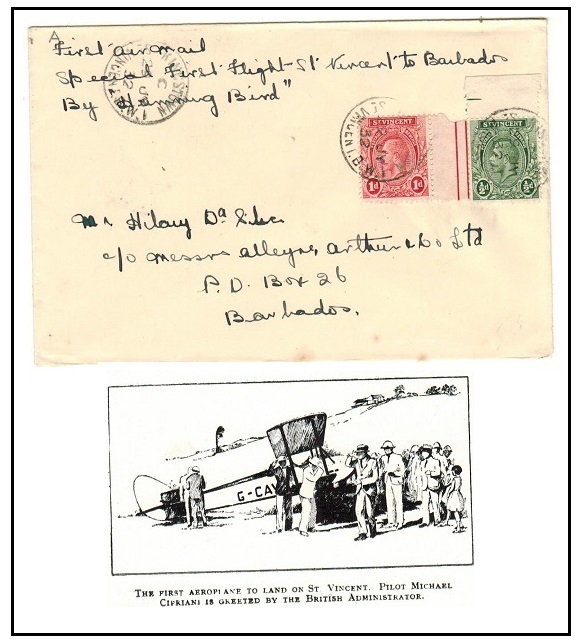 First air mail
Special First Flight - St Vincent to Barbados
By Humming Bird"
ST VINCENT
1d 1d
ST VINCENT
½d ½d
Mr Hilary Da Silva
c/o Messrs Alleyne, Arthur & Co Ltd
P.O. Box 26
Barbados.
G-CA
THE FIRST AEROPLANE TO LAND ON ST VINCENT. PILOT MICHAEL
CIPRIANI IS GREETED BY THE BRITISH ADMINISTRATOR.